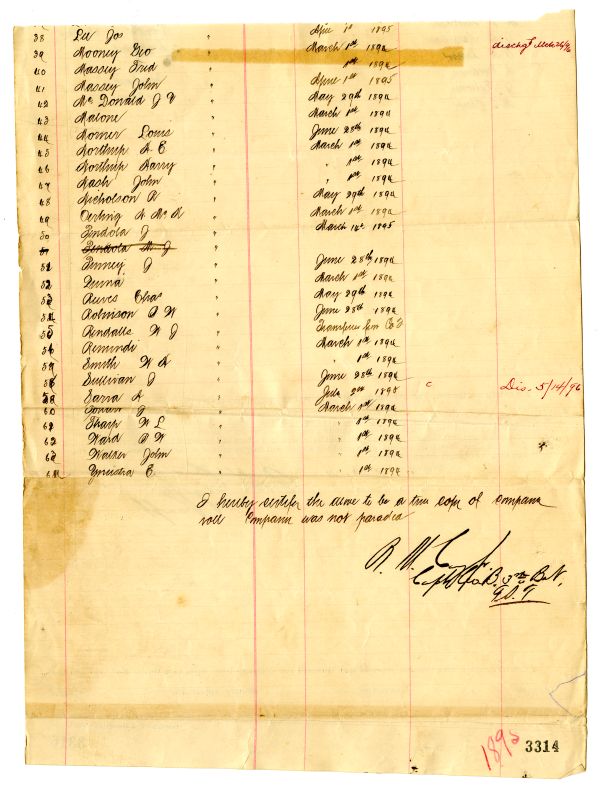 38 Lee Jos " April 1st 1895
39 Mooney Geo " March 1st 1894 dischgd
40 Massey Fred " " 1st 1894
41 Massey John " April 1st 1895
42 McDonald J " May 29th 1894
43 Malone " March 1st 1894
44 Morner Louis " June 28th 1894
45 Northrup A E " March 1st 1894
46 Northrup Harry " " 1st 1894
47 Nash John " " 1st 1894
48 Nicholson R " May 29th 1894
49 Oerting A Mc K " March 1st 1894
50 Pendola J " March 1895
51 Pendola M J
51 Penney J " June 28th 1894
52 " March 1st 1894
53 Reeves Chas " May 29th 1894
54 Robinson B W " June 28th 1894
55 Rendalls W J " Transfer from Co
56 Remindi " March 1st 1894
57 Smith W A " " 1st 1894
58 Sullivan J " June 28th 1894
59 Sarra A " July 2nd 1895 c Dis. 5/14/96
60 J " March 1st 1894
61 Sharp W L " " 1st 1894
62 Ward B W " " 1st 1894
63 Walker John " " 1st 1894
64 Yniestra E. " " 1st 1894
I hereby certify the above to be a true copy of company
roll Company was not paraded
R. M.
Capt Co B. 3rd Bat.
1895 3314